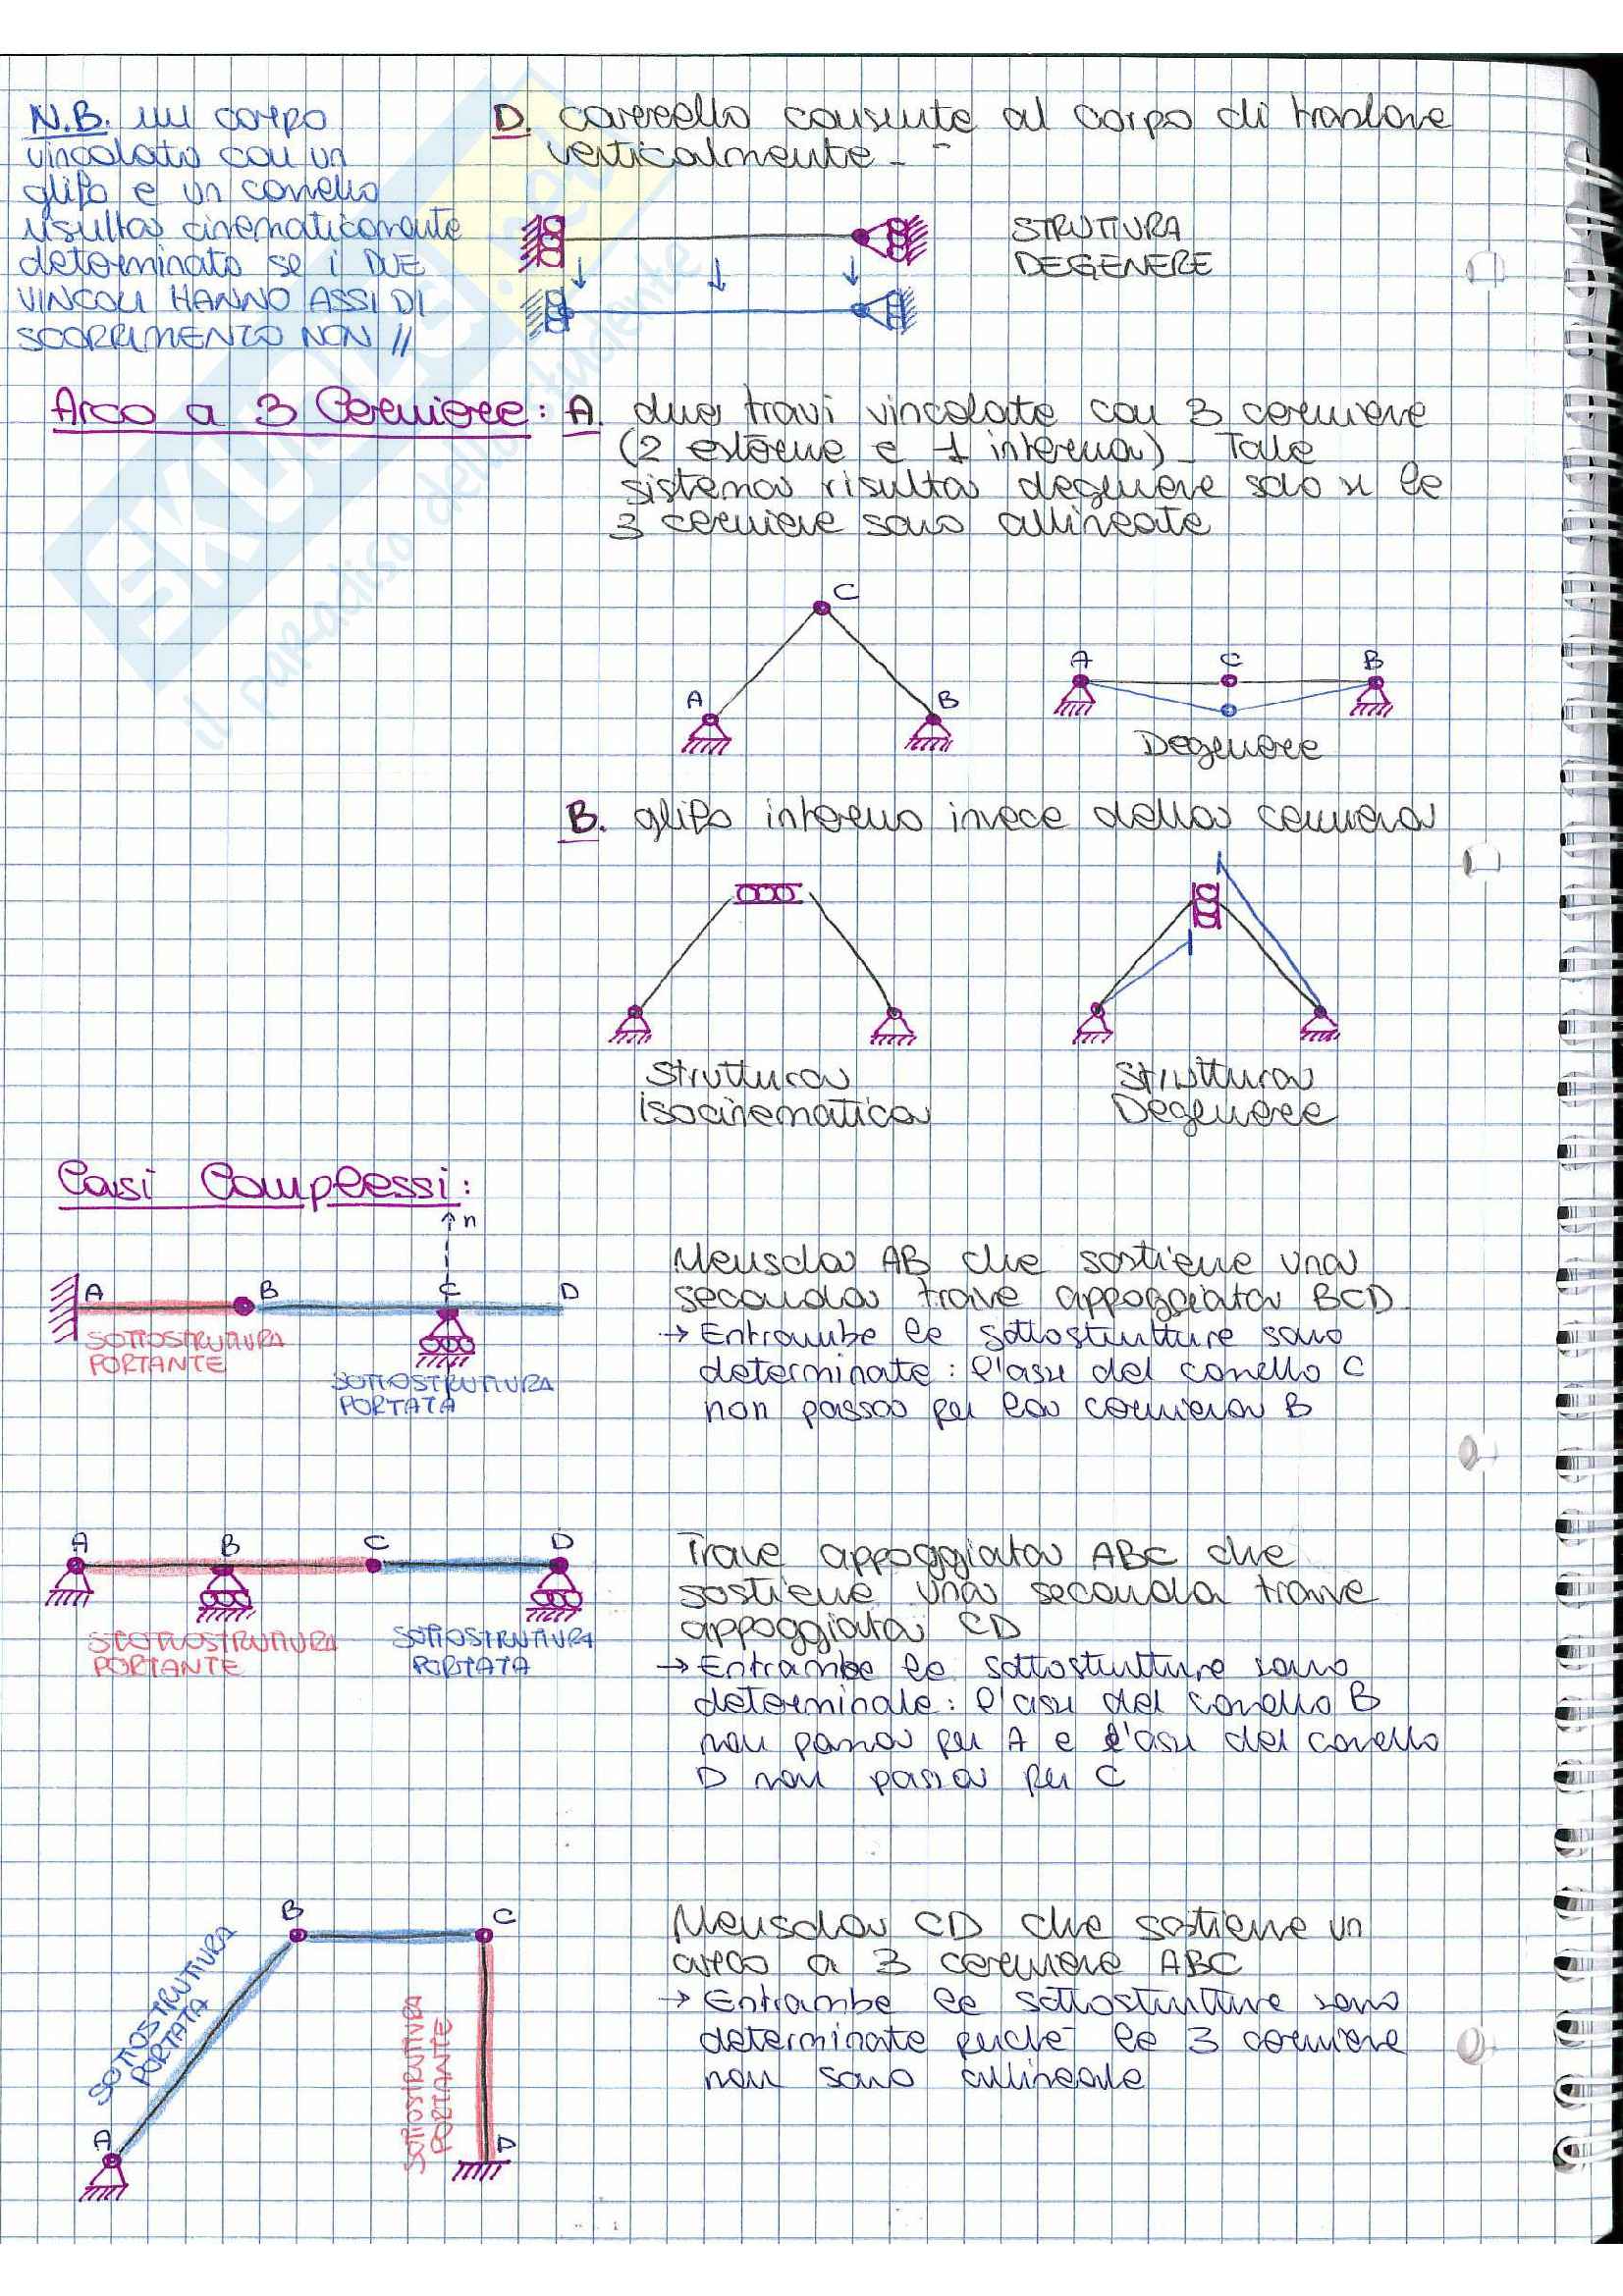 N.B. un corpo
vincolato con un
glifo e un carrello
risulta cinematicamente
determinato se i DUE
VINCOLI HANNO ASSI DI
SCORRIMENTO NON //
D. carrello consente al corpo di traslare
verticalmente -
STRUTTURA
DEGENERE
Arco a 3 Cerniere: A. due travi vincolate con 3 cerniere
(2 esterne e 1 interna). Tale
sistema risulta degenere solo se le
3 cerniere sono allineate
C
A
B
A C B
Degenere
B. glifo interno invece della cerniera
Struttura
isocinematica
Struttura
Degenere
Casi Complessi:
n
A B C D
SOTTOSTRUTTURA
PORTANTE
SOTTOSTRUTTURA
PORTATA
Mensola AB che sostiene una
seconda trave appoggiata BCD
→ Entrambe le sottostrutture sono
determinate: l'asse del carrello C
non passa per la cerniera B
A B C D
SOTTOSTRUTTURA
PORTANTE
SOTTOSTRUTTURA
PORTATA
Trave appoggiata ABC che
sostiene una seconda trave
appoggiata CD
→ Entrambe le sottostrutture sono
determinate: l'asse del carrello B
non passa per A e l'asse del carrello
D non passa per C
B
C
SOTTOSTRUTTURA
PORTATA
SOTTOSTRUTTURA
PORTANTE
A
D
Mensola CD che sostiene un
arco a 3 cerniere ABC
→ Entrambe le sottostrutture sono
determinate perché le 3 cerniere
non sono allineate
SKUOLA.net
il paradiso dello studente